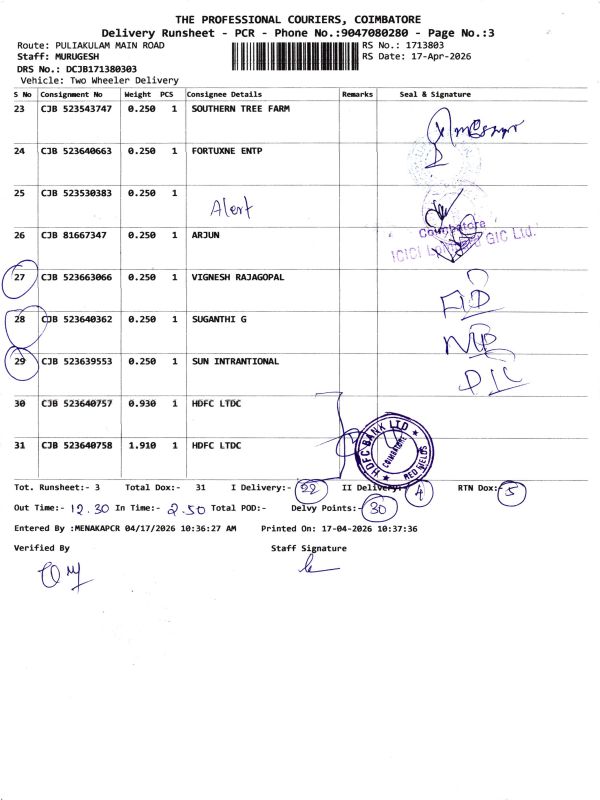 THE PROFESSIONAL COURIERS, COIMBATORE
Delivery Runsheet - PCR - Phone No.:9047080280 - Page No.:3
Route: PULIAKULAM MAIN ROAD RS No.: 1713803
Staff: MURUGESH RS Date: 17-Apr-2026
DRS No.: DCJB171380303
Vehicle: Two Wheeler Delivery
S No Consignment No Weight PCS Consignee Details Remarks Seal & Signature
23 CJB 523543747 0.250 1 SOUTHERN TREE FARM
24 CJB 523640663 0.250 1 FORTUXNE ENTP
25 CJB 523530383 0.250 1
Alert
26 CJB 81667347 0.250 1 ARJUN
Coimbatore
ICICI GIC Ltd.
27 CJB 523663066 0.250 1 VIGNESH RAJAGOPAL
28 CJB 523640362 0.250 1 SUGANTHI G
29 CJB 523639553 0.250 1 SUN INTRANTIONAL
30 CJB 523640757 0.930 1 HDFC LTDC
31 CJB 523640758 1.910 1 HDFC LTDC
HDFC BANK LTD
COIMBATORE
RED FIELDS
Tot. Runsheet:- 3 Total Dox:- 31 I Delivery:- 22 II Delivery:- 4 RTN Dox:- 5
Out Time:- 12.30 In Time:- 2.50 Total POD:- Delvy Points:- 30
Entered By :MENAKAPCR 04/17/2026 10:36:27 AM Printed On: 17-04-2026 10:37:36
Verified By Staff Signature